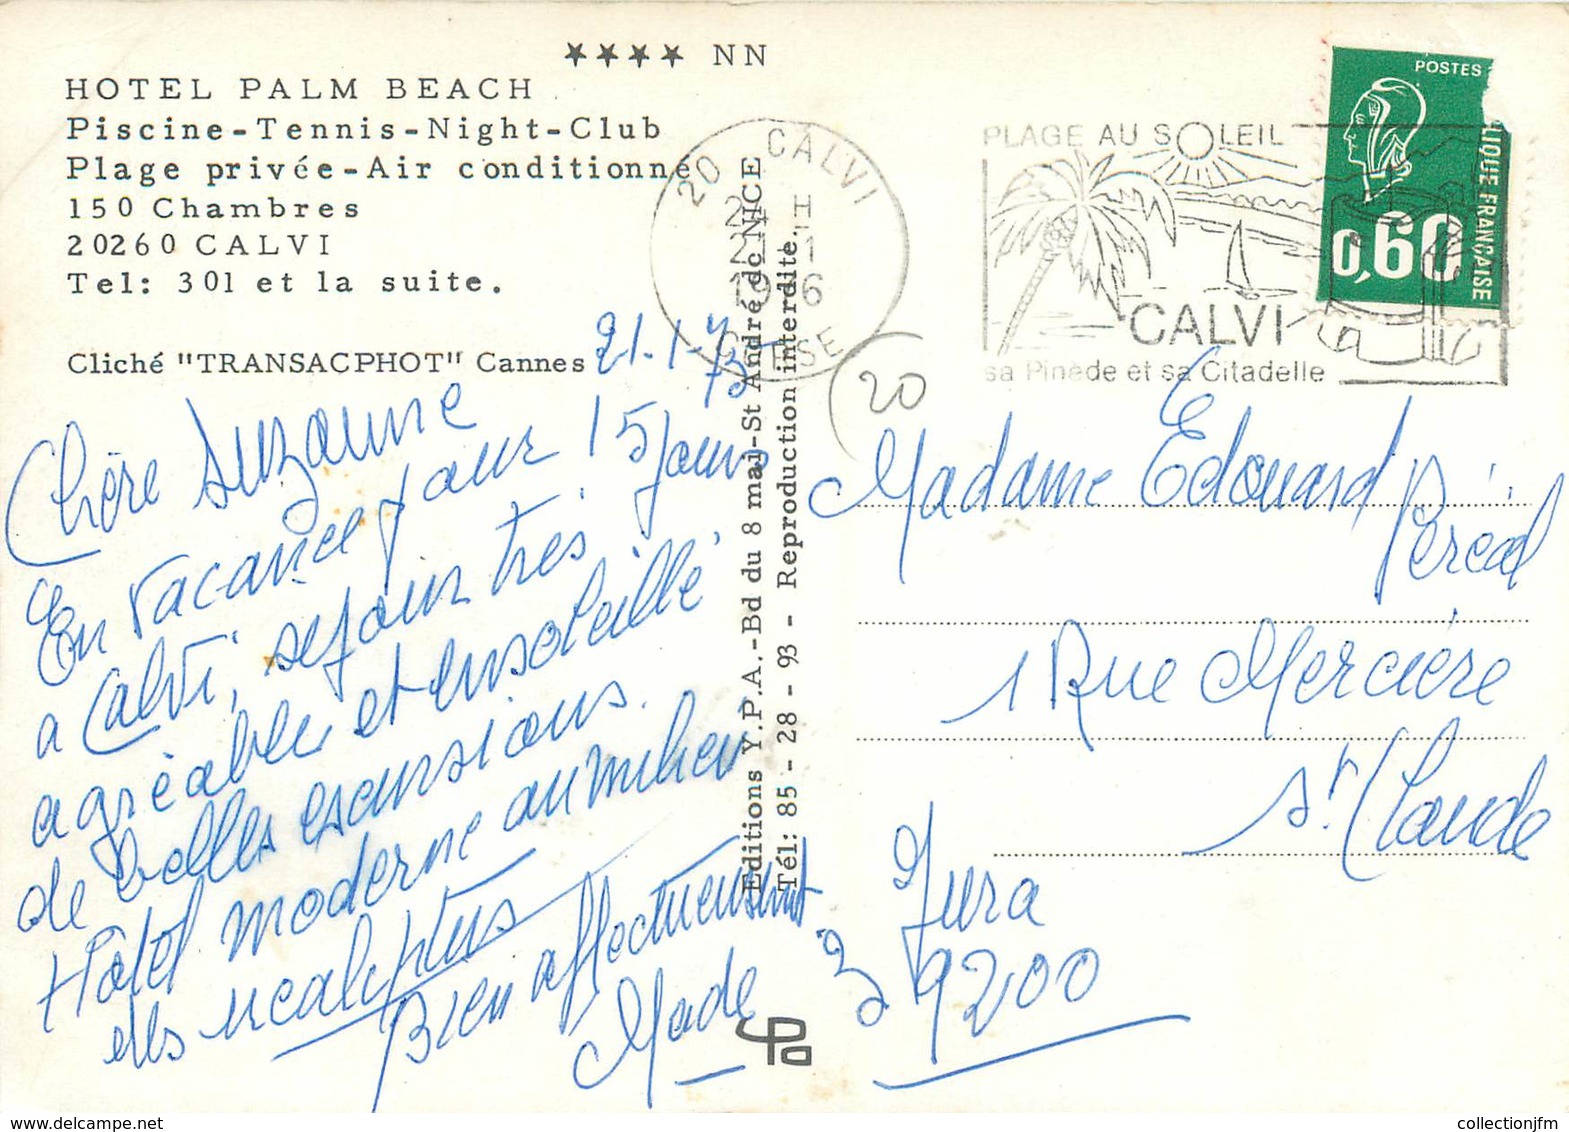 ★★★★ NN
HOTEL PALM BEACH
Piscine-Tennis-Night-Club
Plage privée-Air conditionné
150 Chambres
20260 CALVI
Tel: 301 et la suite.
Cliché "TRANSACPHOT" Cannes
21-1-75
Chère Suzanne
En vacances pour 15 jours
a Calvi, sejour très
agréable et ensoleillé
de belles escursions.
Hôtel moderne au milieu
des ucaliptus
Bien affectueusement
Made
Editions Y.P.A.-Bd du 8 mai-St André de NICE
Tél: 85 - 28 - 93 - Reproduction interdite.
20 CALVI
H
21 1
CORSE
20
PLAGE AU SOLEIL
CALVI
sa Pinède et sa Citadelle
POSTES
IQUE FRANÇAISE
0,60
Madame Edouard
Péréal
1 Rue Mercière
St Claude
Jura
39200
collectionjfm